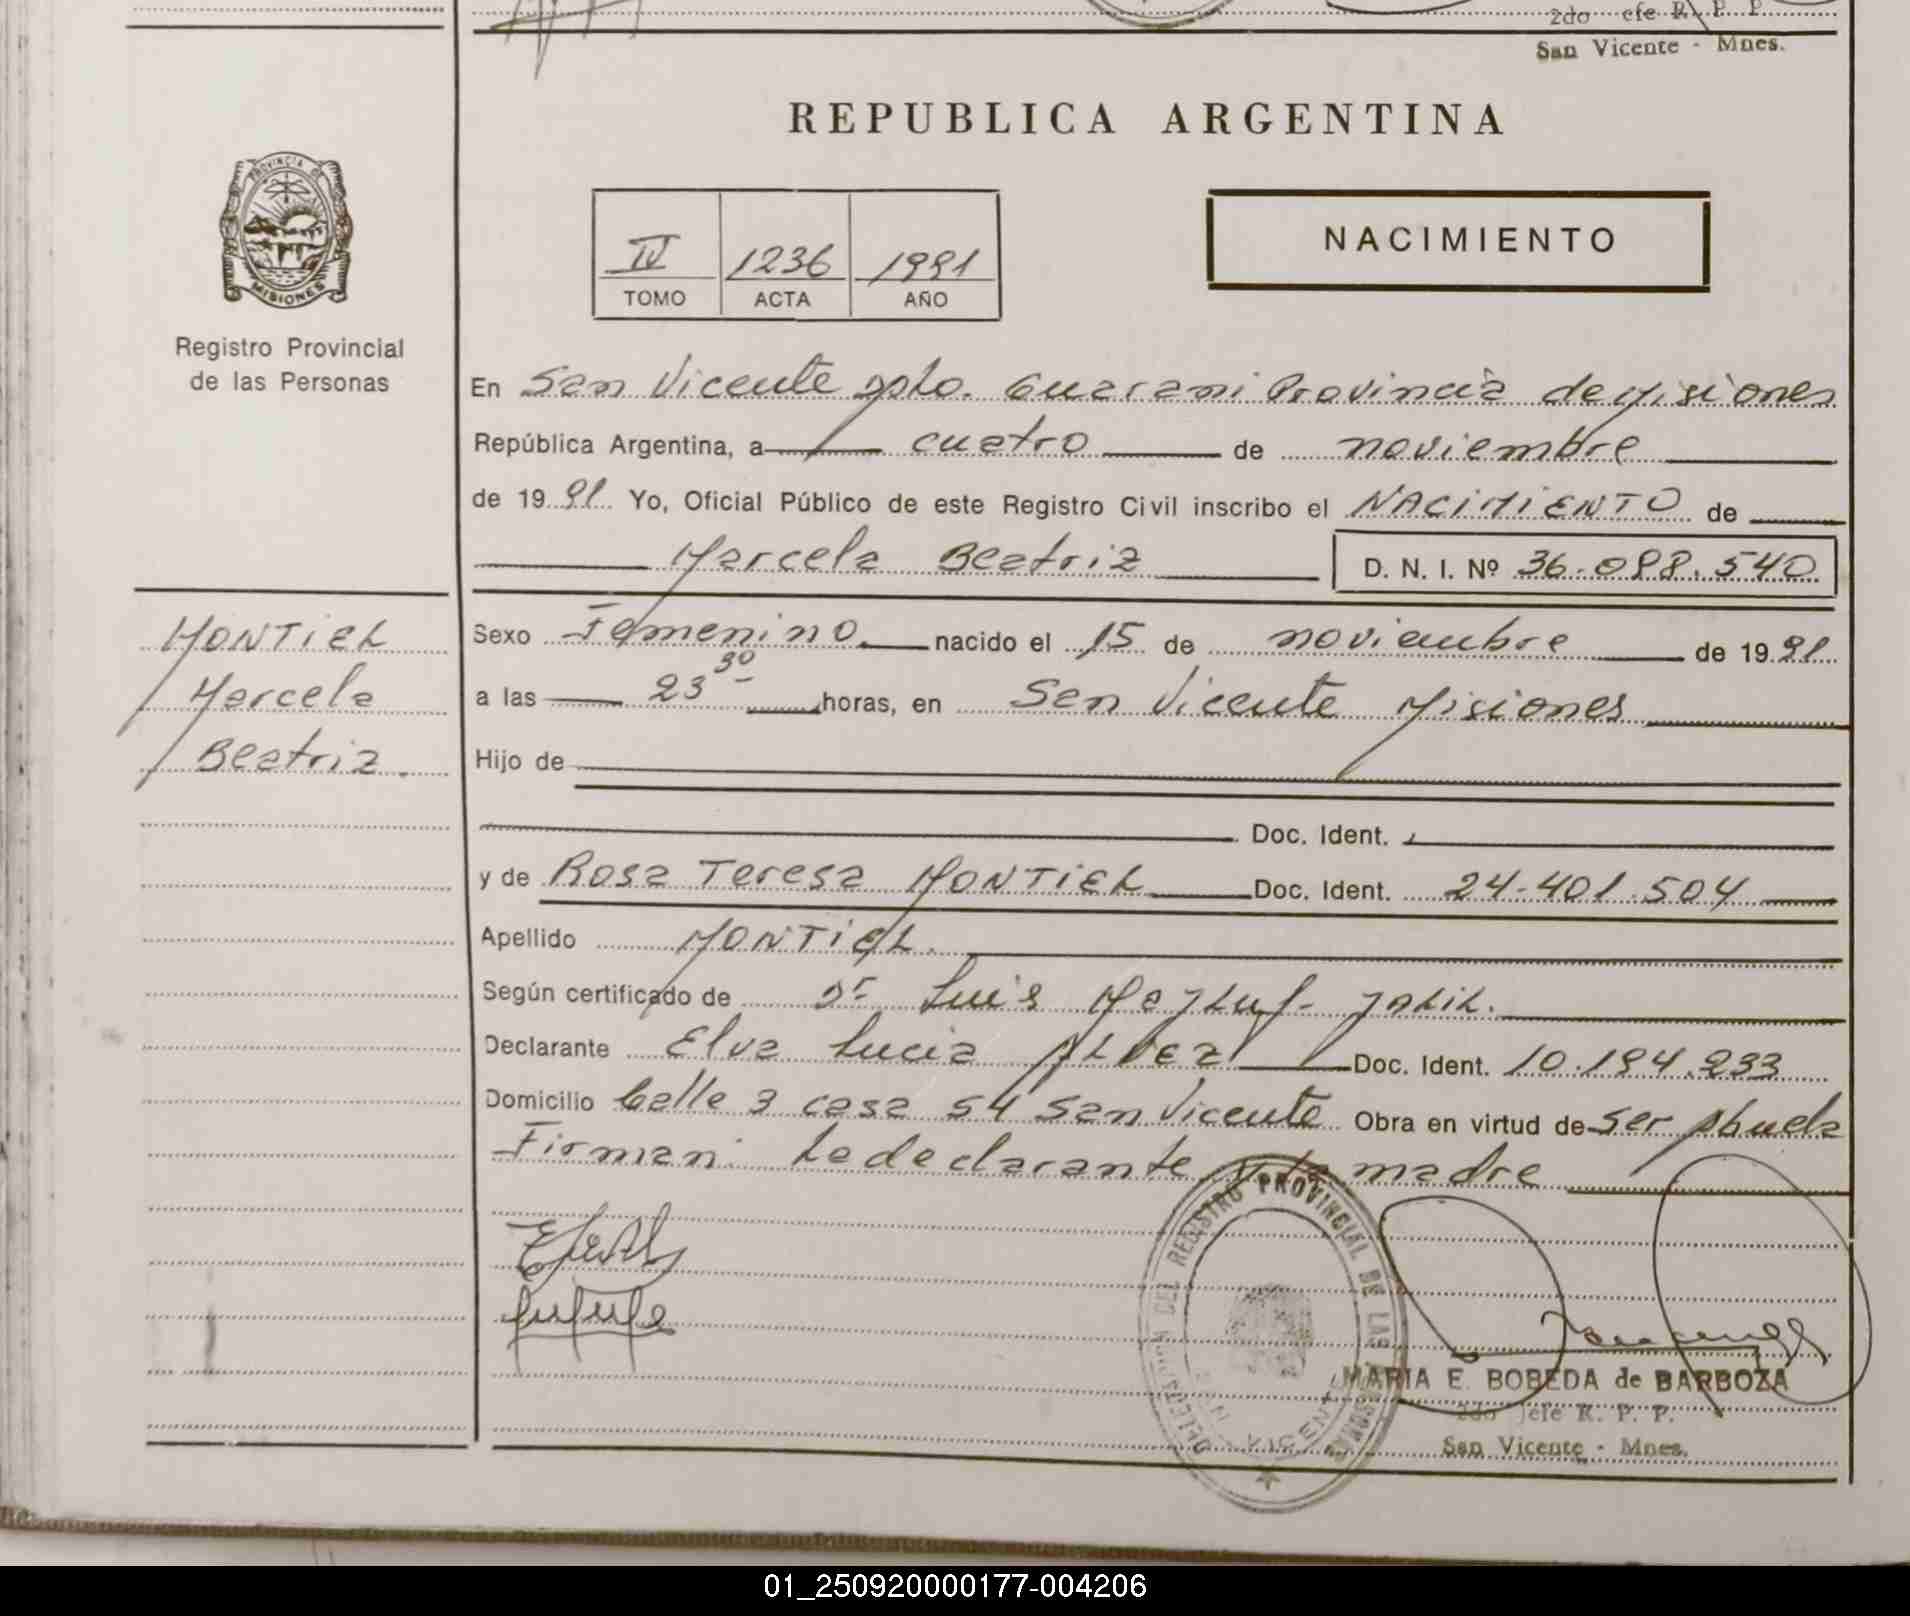 2do efe R. P. P.
San Vicente - Mnes.
REPUBLICA ARGENTINA
PROVINCIA DE
MISIONES
Registro Provincial
de las Personas
IV 1236 1991
TOMO ACTA AÑO
NACIMIENTO
En San Vicente Dpto. Guarani Provincia de Misiones
República Argentina, a cuatro de noviembre
de 1991 Yo, Oficial Público de este Registro Civil inscribo el NACIMIENTO de
Marcela Beatriz D. N. I. Nº 36.098.540
MONTIEL
Marcela
Beatriz.
Sexo Femenino nacido el 15 de noviembre de 1991
a las 23 30 horas, en San Vicente Misiones
Hijo de
Doc. Ident.
y de Rosa Teresa MONTIEL Doc. Ident. 24.401.504
Apellido MONTIEL.
Según certificado de Dr Luis
Declarante Elva Lucia ALVEZ Doc. Ident. 10.194.233
Domicilio Calle 3 casa 54 San Vicente Obra en virtud de ser Abuela
Firman: La declarante y la madre
DELEGACION DEL REGISTRO PROVINCIAL DE LAS PERSONAS
SAN VICENTE
MARIA E. BOBEDA de BARBOZA
2do Jefe R. P. P.
San Vicente - Mnes.
01_250920000177-004206